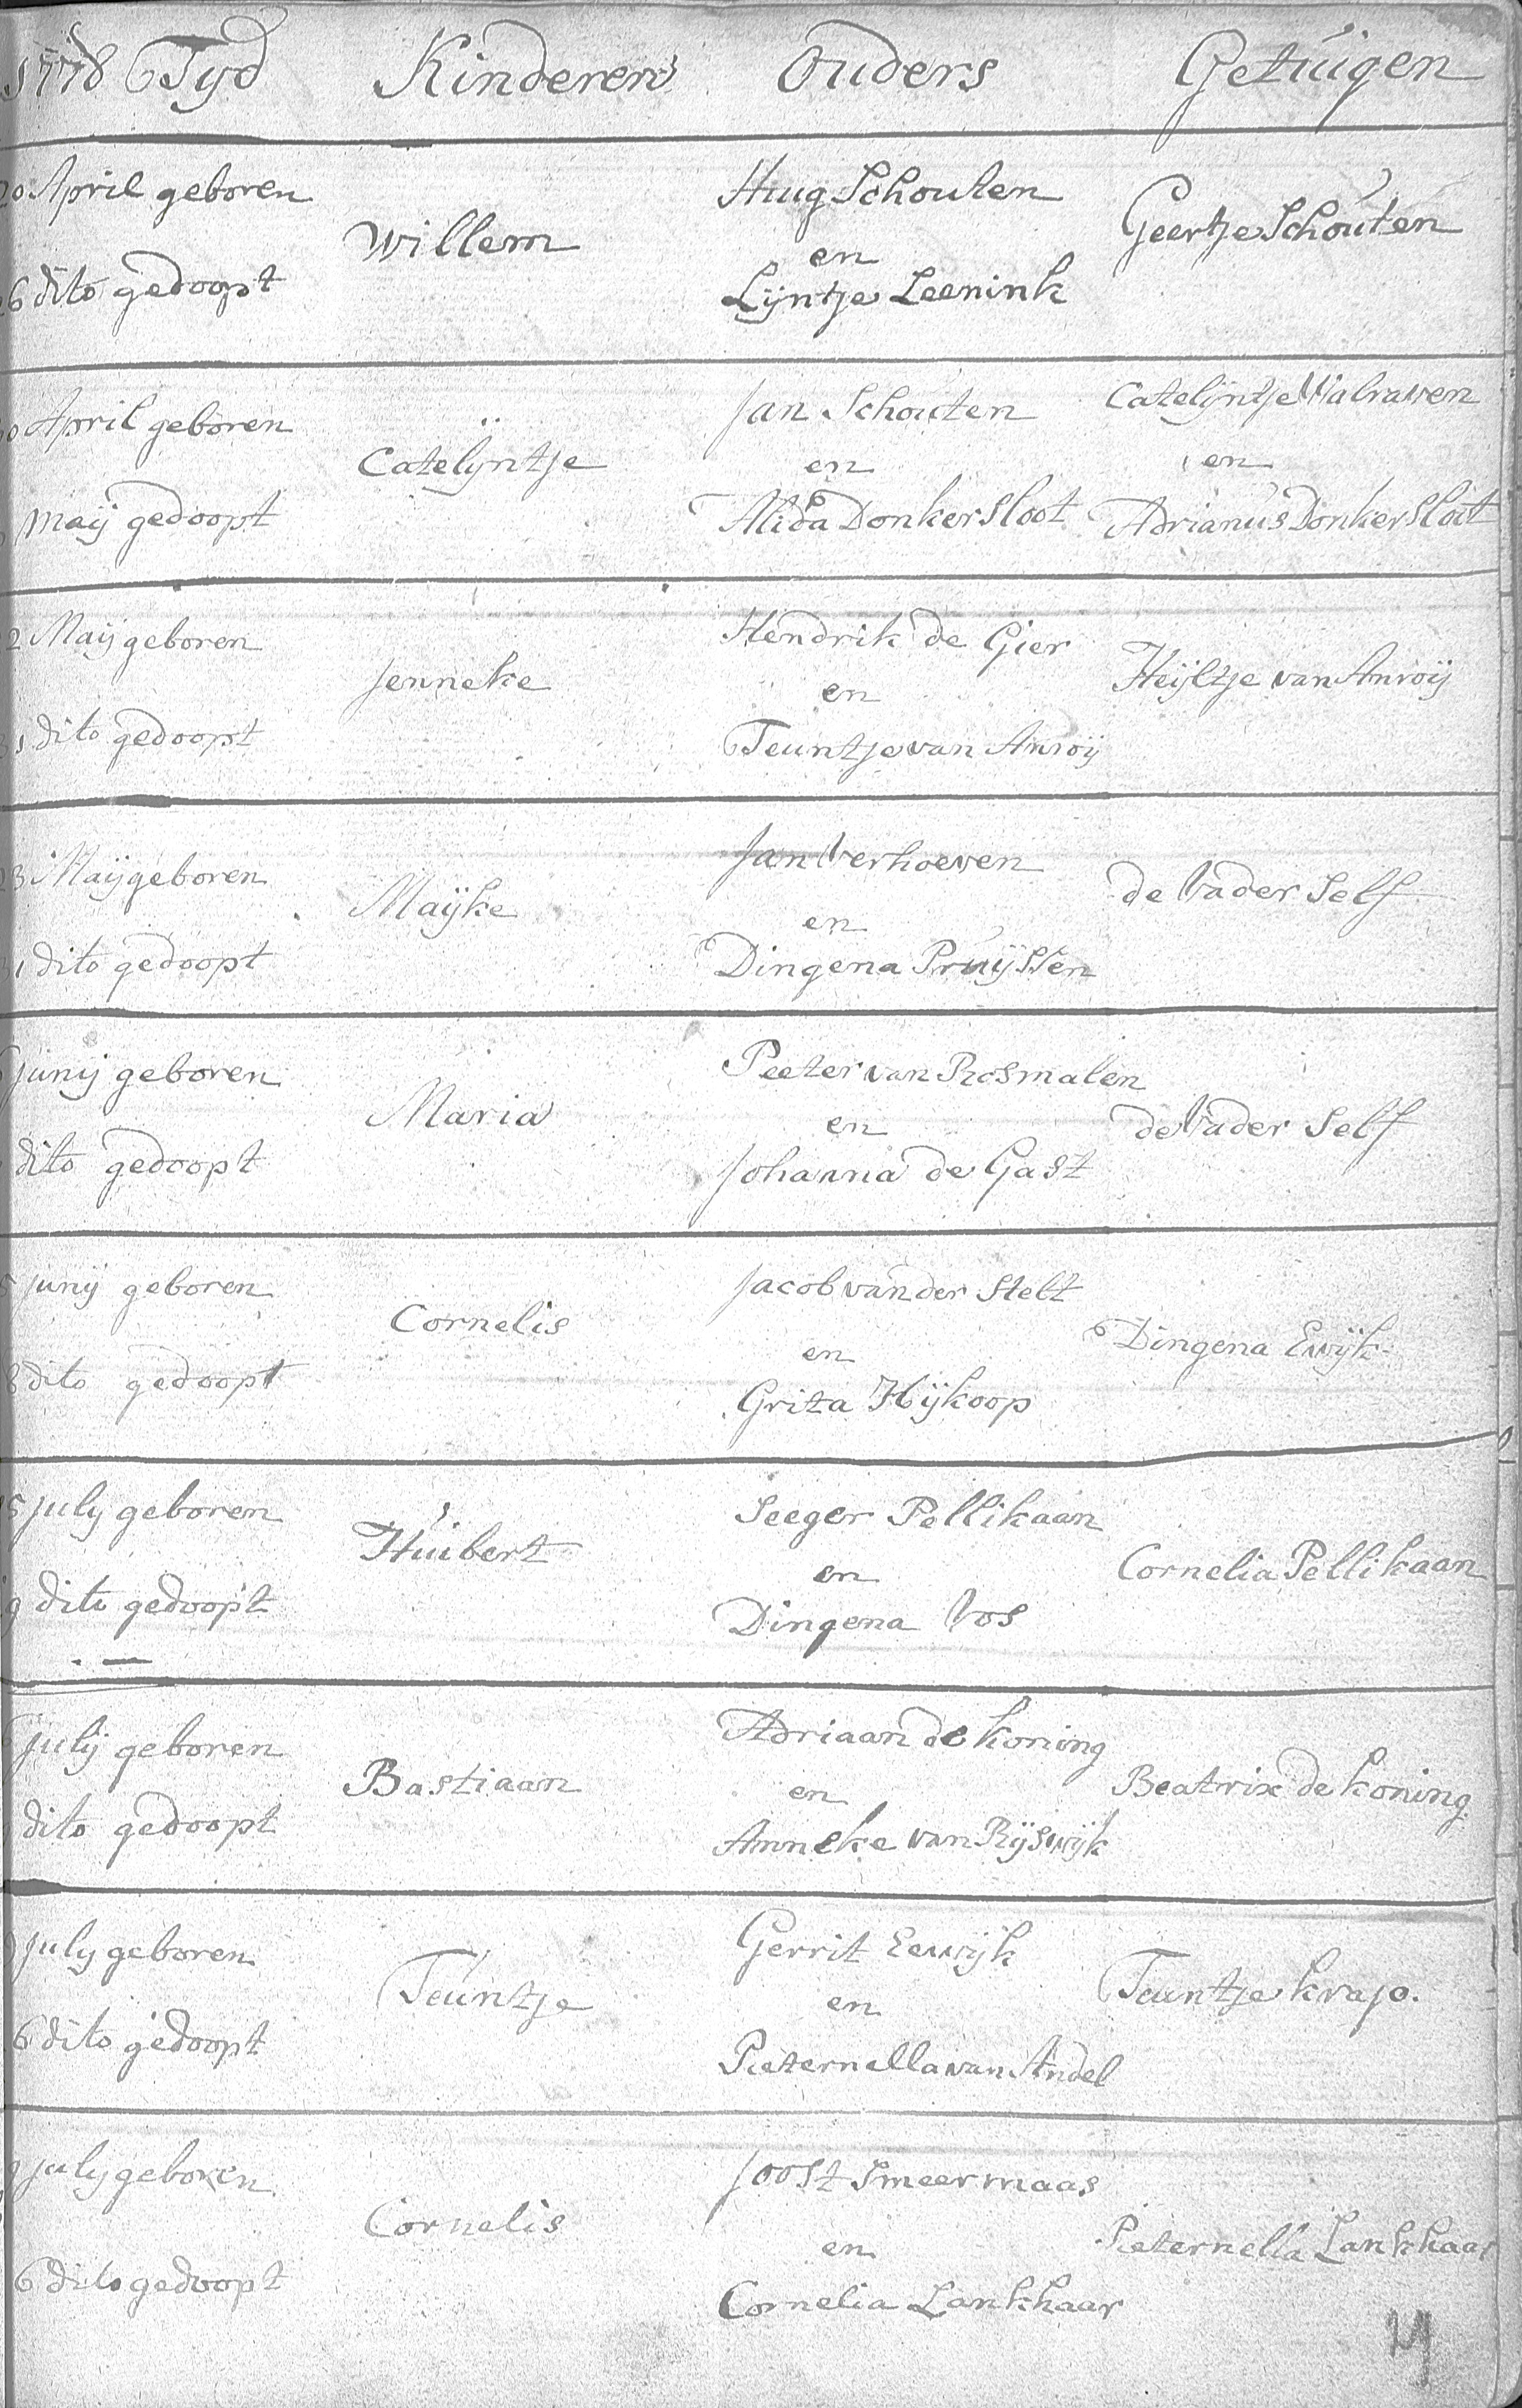 1778 Tyd Kinderen Ouders Getuigen
20 April geboren
26 dito gedoopt
Willem
Huug Schouten
en
Lyntje Leenink
Geertje Schouten
April geboren
maij gedoopt
Catelÿntje
Jan Schouten
en
Alida Donkersloot
Catelijntje Walraven
en
Adrianus Donkersloot
2 Maij geboren
31 dito gedoopt
Jenneke
Hendrik de Gier
en
Teuntje van Anroij
Heijltje van Anroij
23 Maij geboren
31 dito gedoopt
Maijke
Jan Verhoeven
en
Dingena Pruijssen
de Vader Self
junij geboren
dito gedoopt
Maria
Peeter van Rosmalen
en
Johanna de Gast
de Vader Self
junij geboren
8 dito gedoopt
Cornelis
Jacob van der Stelt
en
Grita Hijkoop
Dingena Ewijk
15 july geboren
19 dito gedoopt
Huibert
Seeger Pellikaan
en
Dingena Vos
Cornelia Pellikaan
julij geboren
dito gedoopt
Bastiaan
Adriaan de koning
en
Anneke van Rijswijk
Beatrix de koning
july geboren
6 dito gedoopt
Teuntje
Gerrit Eewijk
en
Pieternella van Andel
Teuntje krajo.
july geboren
6 dito gedoopt
Cornelis
Joost Smeermaas
en
Cornelia Lankhaar
Pieternella Lankhaar